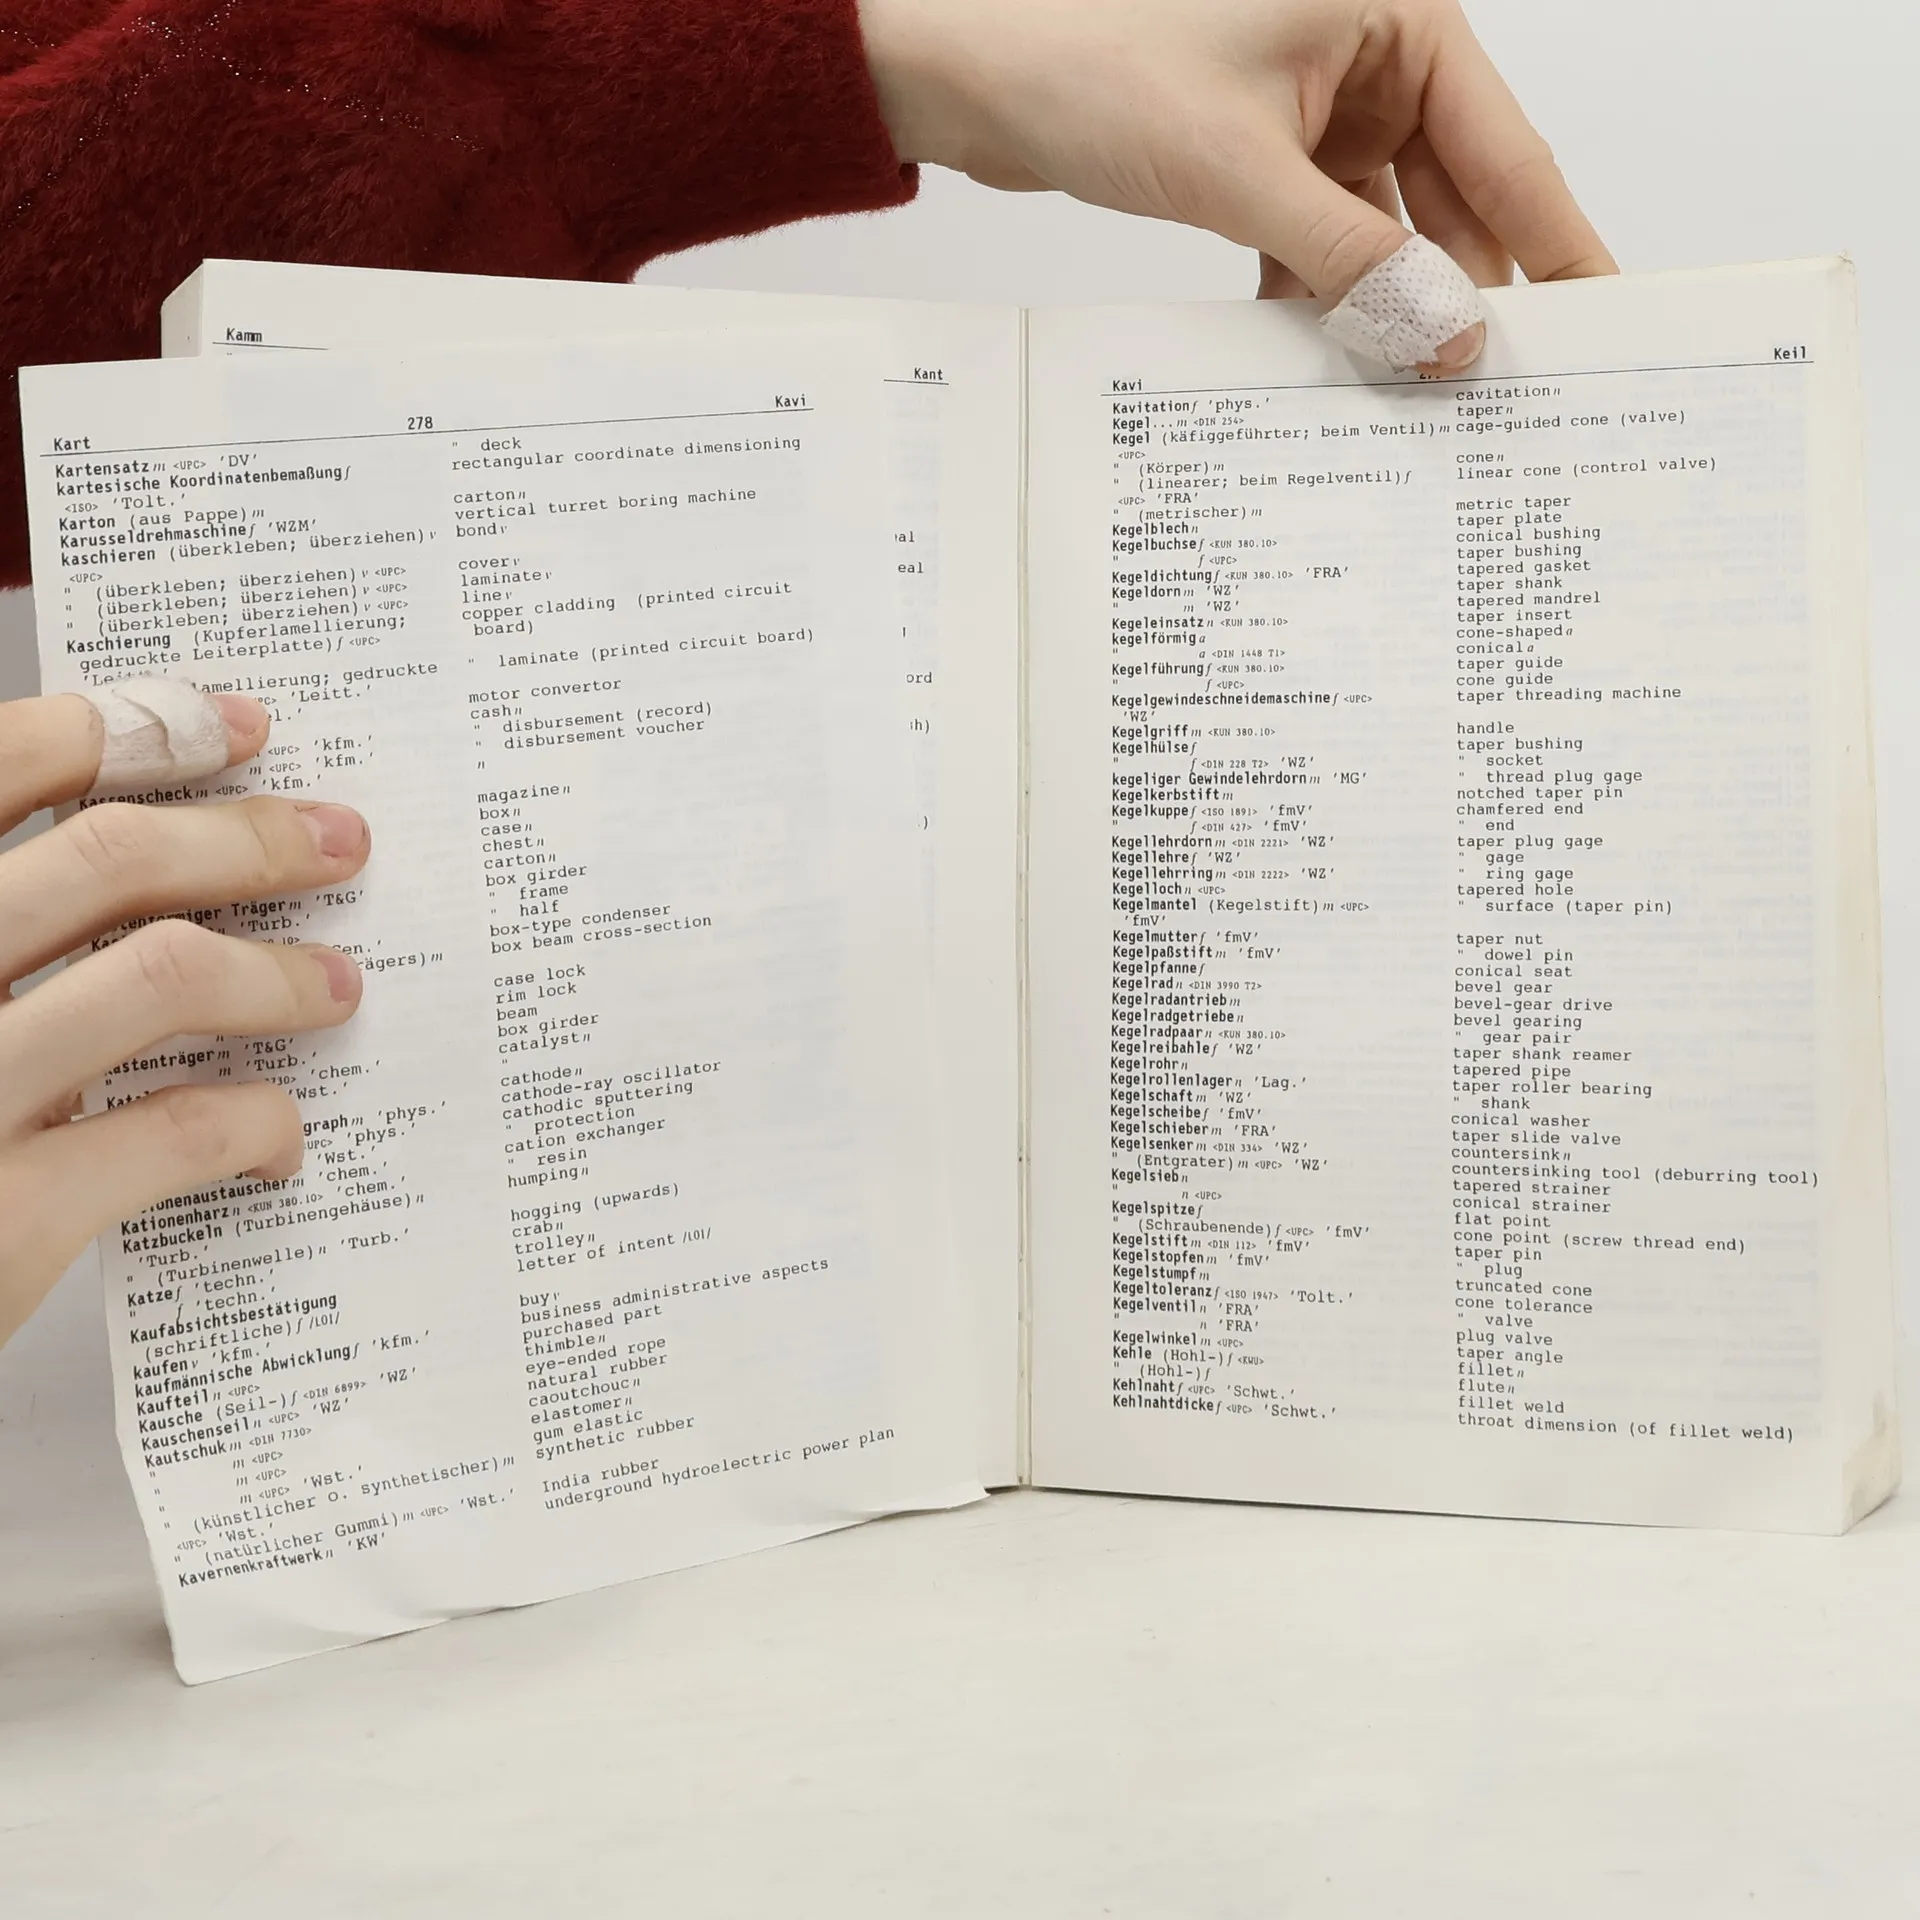 Kamm
Kant
Kart 278 Kavi
Kartensatz m <UPC> 'DV' " deck
kartesische Koordinatenbemaßung f rectangular coordinate dimensioning
<ISO> 'Tolt.'
Karton (aus Pappe) m carton n
Karusseldrehmaschine f 'WZM' vertical turret boring machine
kaschieren (überkleben; überziehen) v bond v
<UPC>
" (überkleben; überziehen) v <UPC> cover v
" (überkleben; überziehen) v <UPC> laminate v
" (überkleben; überziehen) v <UPC> line v
Kaschierung (Kupferlamellierung; copper cladding (printed circuit
gedruckte Leiterplatte) f <UPC> board)
lamellierung; gedruckte " laminate (printed circuit board)
'Leitt.'
motor convertor
cash n
<UPC> 'kfm.' " disbursement (record)
m <UPC> 'kfm.' " disbursement voucher
Kassenscheck m <UPC> 'kfm.' "
magazine n
box n
case n
chest n
carton n
box girder
förmiger Träger m 'T&G' " frame
'Turb.' " half
box-type condenser
rägers) m box beam cross-section
case lock
rim lock
beam
Kastenträger m 'T&G' box girder
m 'Turb.' catalyst n
'chem.' "
'Wst.' cathode n
cathode-ray oscillator
graph m 'phys.' cathodic sputtering
<UPC> 'phys.' " protection
'Wst.' cation exchanger
'chem.' " resin
ionenaustauscher m 'chem.' humping n
Kationenharz n <KUN 380.10> 'chem.'
Katzbuckeln (Turbinengehäuse) n hogging (upwards)
'Turb.' crab n
" (Turbinenwelle) n 'Turb.' trolley n
Katze f 'techn.' letter of intent /LOI/
" f 'techn.'
Kaufabsichtsbestätigung
(schriftliche) f /LOI/
kaufen v 'kfm.' buy v
kaufmännische Abwicklung f 'kfm.' business administrative aspects
Kaufteil n <UPC> purchased part
Kausche (Seil-) f <DIN 6899> 'WZ' thimble n
Kauschenseil n <UPC> 'WZ' eye-ended rope
Kautschuk m <DIN 7730> natural rubber
" m <UPC> caoutchouc n
" m <UPC> elastomer n
" m <UPC> 'Wst.' gum elastic
" (künstlicher o. synthetischer) m synthetic rubber
<UPC> 'Wst.'
" (natürlicher Gummi) m <UPC> 'Wst.' India rubber
Kavernenkraftwerk n 'KW' underground hydroelectric power plan
Kavi Keil
Kavitation f 'phys.' cavitation n
Kegel... m <DIN 254> taper n
Kegel (käfiggeführter; beim Ventil) m cage-guided cone (valve)
<UPC>
" (Körper) m cone n
" (linearer; beim Regelventil) f linear cone (control valve)
<UPC> 'FRA'
" (metrischer) m metric taper
Kegelblech n taper plate
Kegelbuchse f <KUN 380.10> conical bushing
" f <UPC> taper bushing
Kegeldichtung f <KUN 380.10> 'FRA' tapered gasket
Kegeldorn m 'WZ' taper shank
" m 'WZ' tapered mandrel
Kegeleinsatz n <KUN 380.10> taper insert
kegelförmig a cone-shaped a
" a <DIN 1448 T1> conical a
Kegelführung f <KUN 380.10> taper guide
" f <UPC> cone guide
Kegelgewindeschneidemaschine f <UPC> taper threading machine
'WZ'
Kegelgriff m <KUN 380.10> handle
Kegelhülse f taper bushing
" f <DIN 228 T2> 'WZ' " socket
kegeliger Gewindelehrdorn m 'MG' " thread plug gage
Kegelkerbstift m notched taper pin
Kegelkuppe f <ISO 1891> 'fmV' chamfered end
" f <DIN 427> 'fmV' " end
Kegellehrdorn m <DIN 2221> 'WZ' taper plug gage
Kegellehre f 'WZ' " gage
Kegellehrring m <DIN 2222> 'WZ' " ring gage
Kegelloch n <UPC> tapered hole
Kegelmantel (Kegelstift) m <UPC> " surface (taper pin)
'fmV'
Kegelmutter f 'fmV' taper nut
Kegelpaßstift m 'fmV' " dowel pin
Kegelpfanne f conical seat
Kegelrad n <DIN 3990 T2> bevel gear
Kegelradantrieb m bevel-gear drive
Kegelradgetriebe n bevel gearing
Kegelradpaar n <KUN 380.10> " gear pair
Kegelreibahle f 'WZ' taper shank reamer
Kegelrohr n tapered pipe
Kegelrollenlager n 'Lag.' taper roller bearing
Kegelschaft m 'WZ' " shank
Kegelscheibe f 'fmV' conical washer
Kegelschieber m 'FRA' taper slide valve
Kegelsenker m <DIN 334> 'WZ' countersink n
" (Entgrater) m <UPC> 'WZ' countersinking tool (deburring tool)
Kegelsieb n tapered strainer
" n <UPC> conical strainer
Kegelspitze f flat point
" (Schraubenende) f <UPC> 'fmV' cone point (screw thread end)
Kegelstift m <DIN 112> 'fmV' taper pin
Kegelstopfen m 'fmV' " plug
Kegelstumpf m truncated cone
Kegeltoleranz f <ISO 1947> 'Tolt.' cone tolerance
Kegelventil n 'FRA' " valve
" n 'FRA' plug valve
Kegelwinkel m <UPC> taper angle
Kehle (Hohl-) f <KWU> fillet n
" (Hohl-) f flute n
Kehlnaht f <UPC> 'Schwt.' fillet weld
Kehlnahtdicke f <UPC> 'Schwt.' throat dimension (of fillet weld)